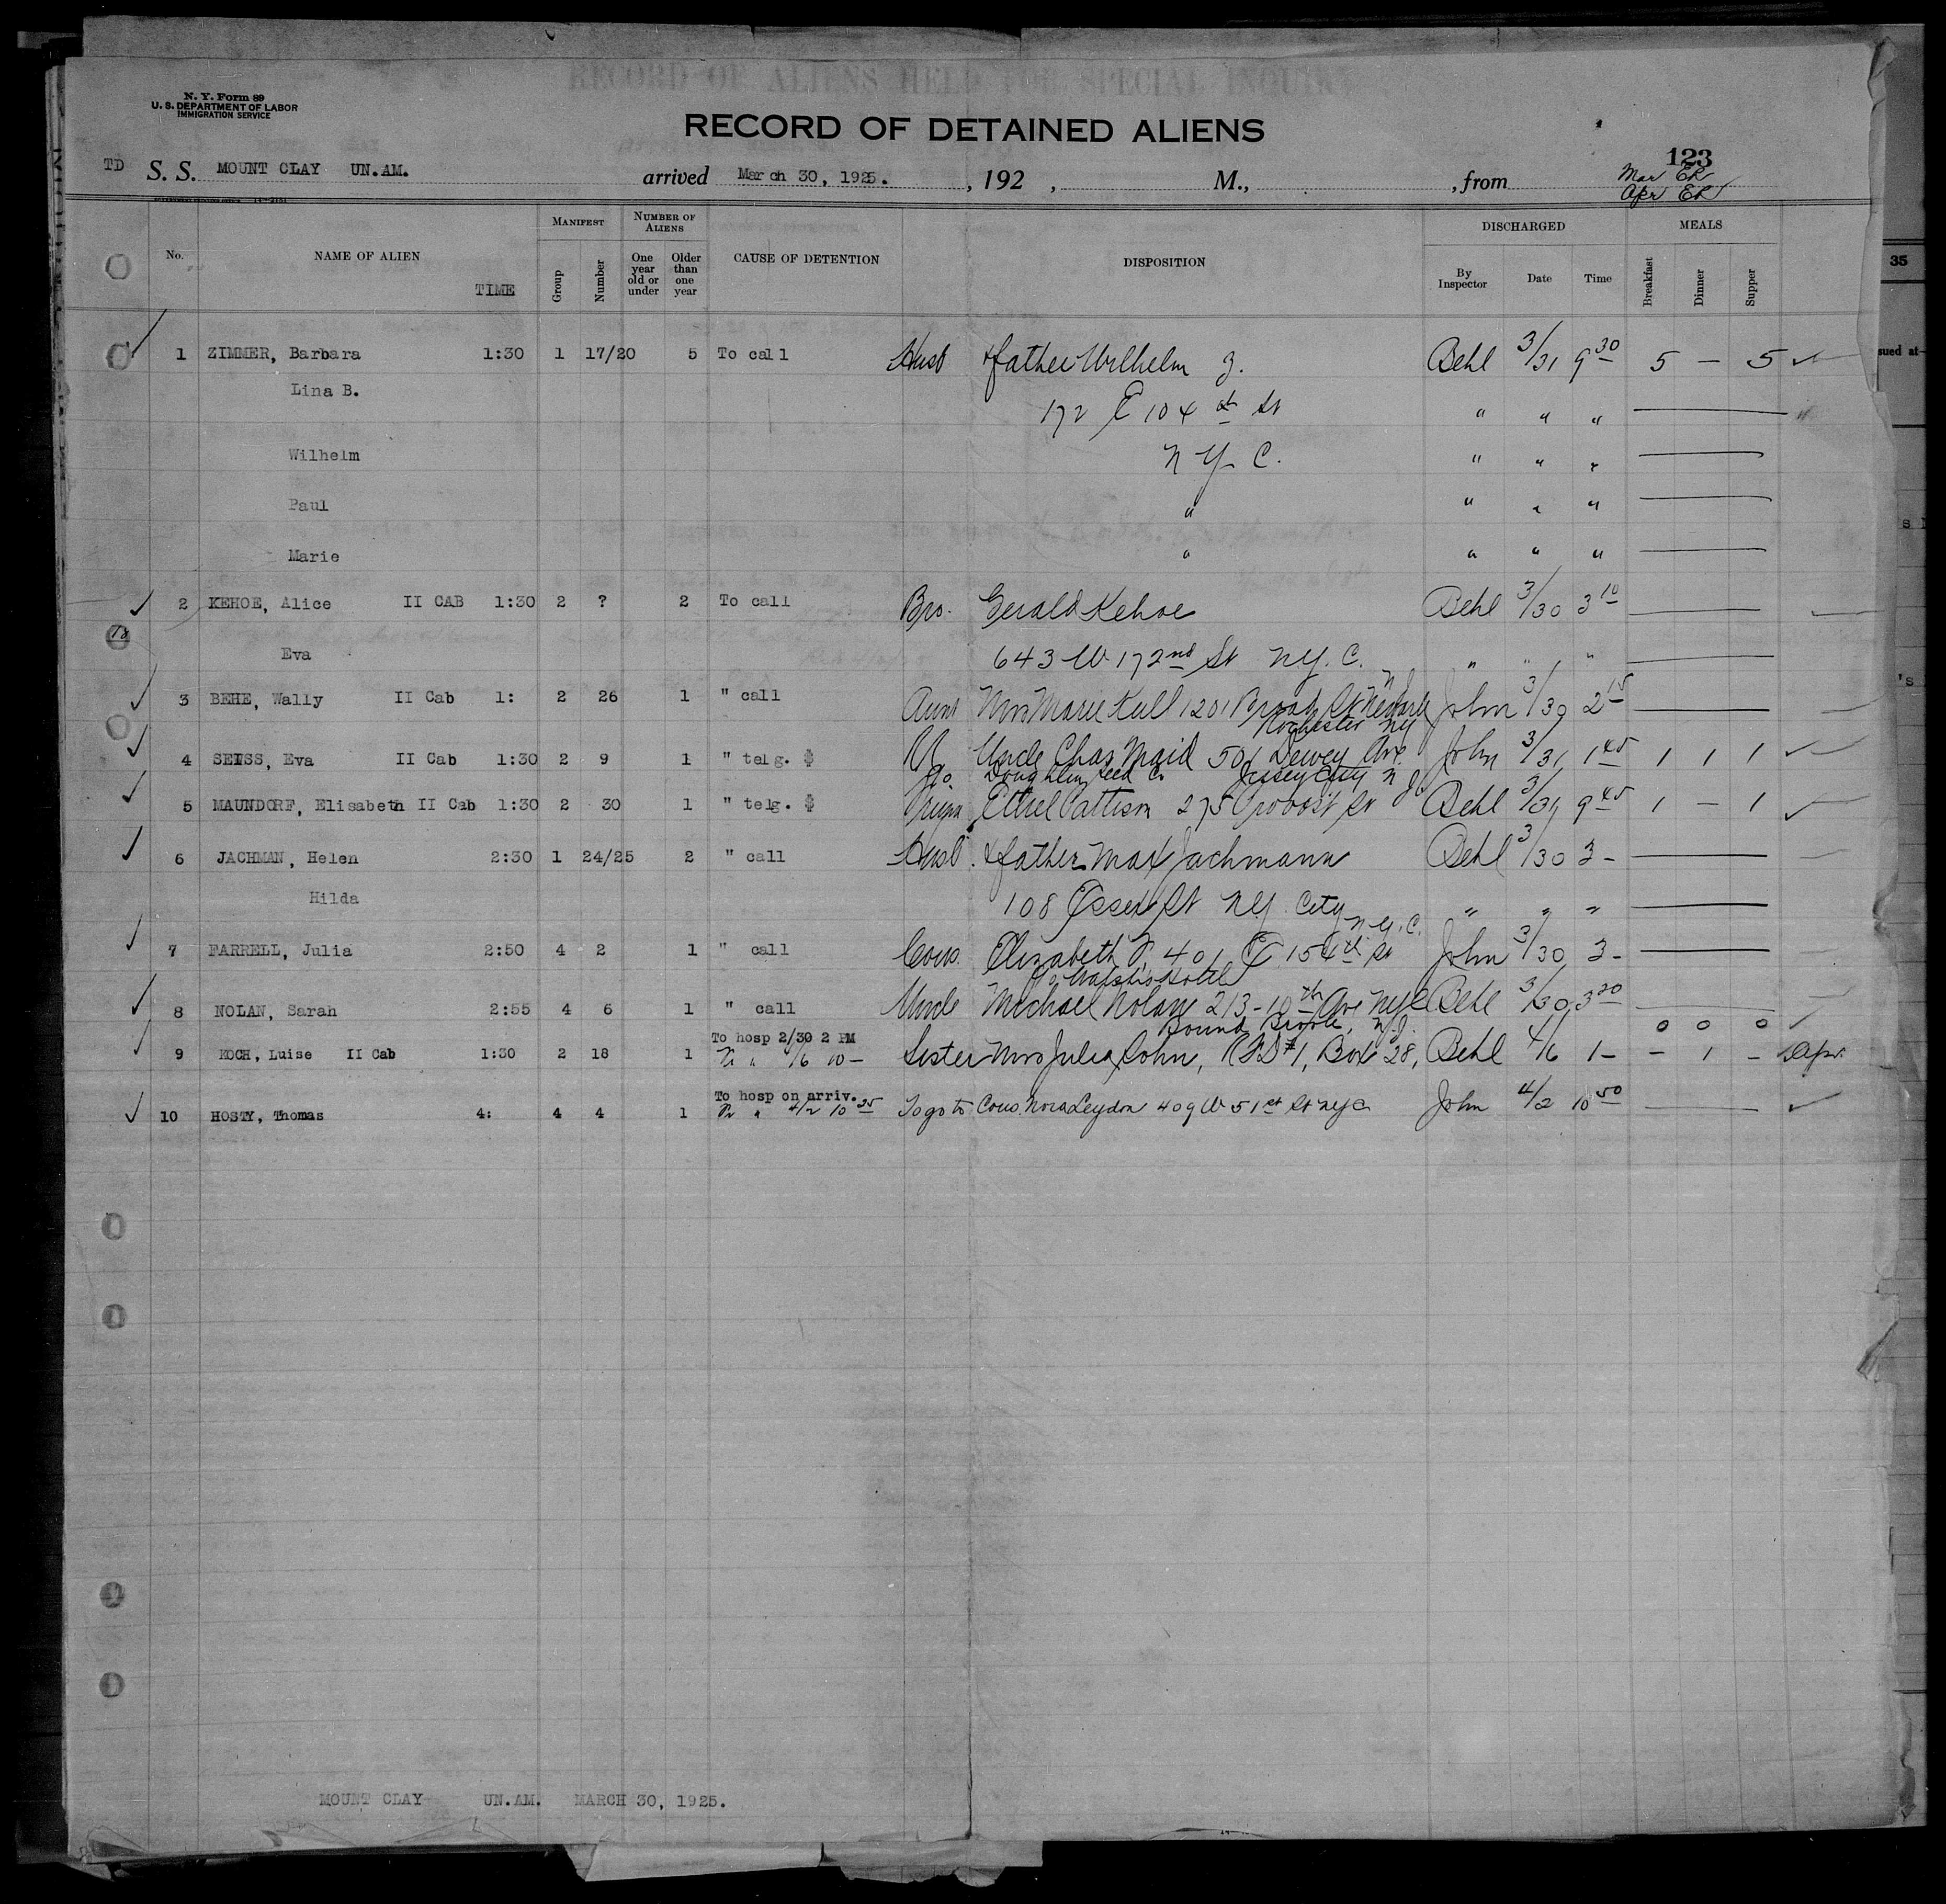 RECORD OF ALIENS HELD FOR SPECIAL INQUIRY
N. Y. Form 89
U. S. DEPARTMENT OF LABOR
IMMIGRATION SERVICE
RECORD OF DETAINED ALIENS
123
TD S. S. MOUNT CLAY UN.AM. arrived March 30, 1925. , 192 , M., , from Mar ER
Apr ER
No. NAME OF ALIEN TIME MANIFEST Group Number NUMBER OF ALIENS One year old or under Older than one year CAUSE OF DETENTION DISPOSITION DISCHARGED By Inspector Date Time MEALS Breakfast Dinner Supper
35
1 ZIMMER, Barbara 1:30 1 17/20 5 To call Husb & father Wilhelm Z. Behl 3/31 9 30 5 — 5
sued at
Lina B. 172 E 104 th St " " " "
Wilhelm N. Y. C. " " "
Paul " " " "
Marie " " " "
2 KEHOE, Alice II CAB 1:30 2 ? 2 To call Bro. Gerald Kehoe Behl 3/30 3 10
Eva 643 W 172nd St N.Y. C. " " "
3 BEHE, Wally II Cab 1: 2 26 1 " call Aunt Mrs Marie Kull 1201 Broad St Newark N J John 3/30 2 15
Rochester NY
4 SEISS, Eva II Cab 1:30 2 9 1 " telg. Uncle Chas Maid 501 Dewey Ave. John 3/31 1 45 1 1 1
Jersey City N J
5 MAUNDORF, Elisabeth II Cab 1:30 2 30 1 " telg. Ethel Pattison 275 Provost St Behl 3/31 9 45 1 — 1
6 JACHMAN, Helen 2:30 1 24/25 2 " call Husb. & father Max Jachmann Behl 3/30 3 -
Hilda 108 Essex St N.Y. City " " "
N.Y.C.
7 FARRELL, Julia 2:50 4 2 1 " call Cous. Elizabeth F. 401 E 154th St John 3/30 3 -
8 NOLAN, Sarah 2:55 4 6 1 " call Uncle Michael Nolan 213-10th Ave NYC Behl 3/30 3 20
To hosp 2/30 2 PM Bound Brook, N.J. 0 0 0
9 KOCH, Luise II Cab 1:30 2 18 1 4/6 10 — Sister Mrs Julia Sohn, RFD #1, Box 28, Behl 4/6 1 - - 1 -
To hosp on arriv.
10 HOSTY, Thomas 4: 4 4 1 4/2 10 25 To go to Cous. Nora Leydon 409 W 51st St NYC John 4/2 10 50
MOUNT CLAY UN.AM. MARCH 30, 1925.